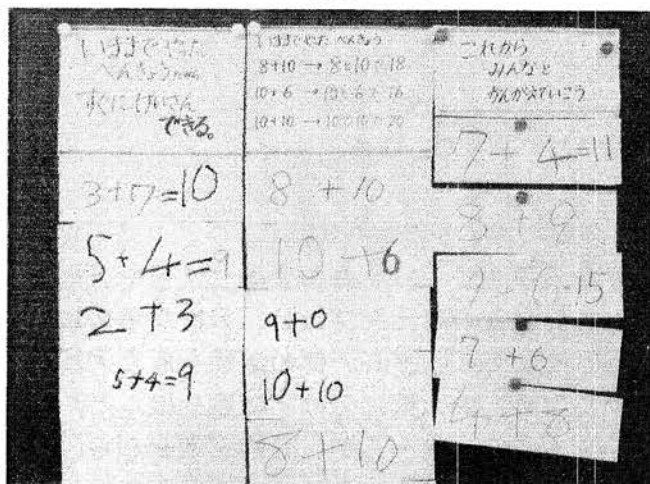 いままでやった
べんきょうから
すぐにけいさん
できる。
3+7=10
5+4=9
2+3
5+4=9
いままでやったべんきょう
8+10→8と10で18
10+6→10と6で16
10+10→10と10で20
8+10
10+6
9+0
10+10
8+10
これから
みんなと
かんがえていこう
7+4=11
8+9
9+6=15
7+6
4+8